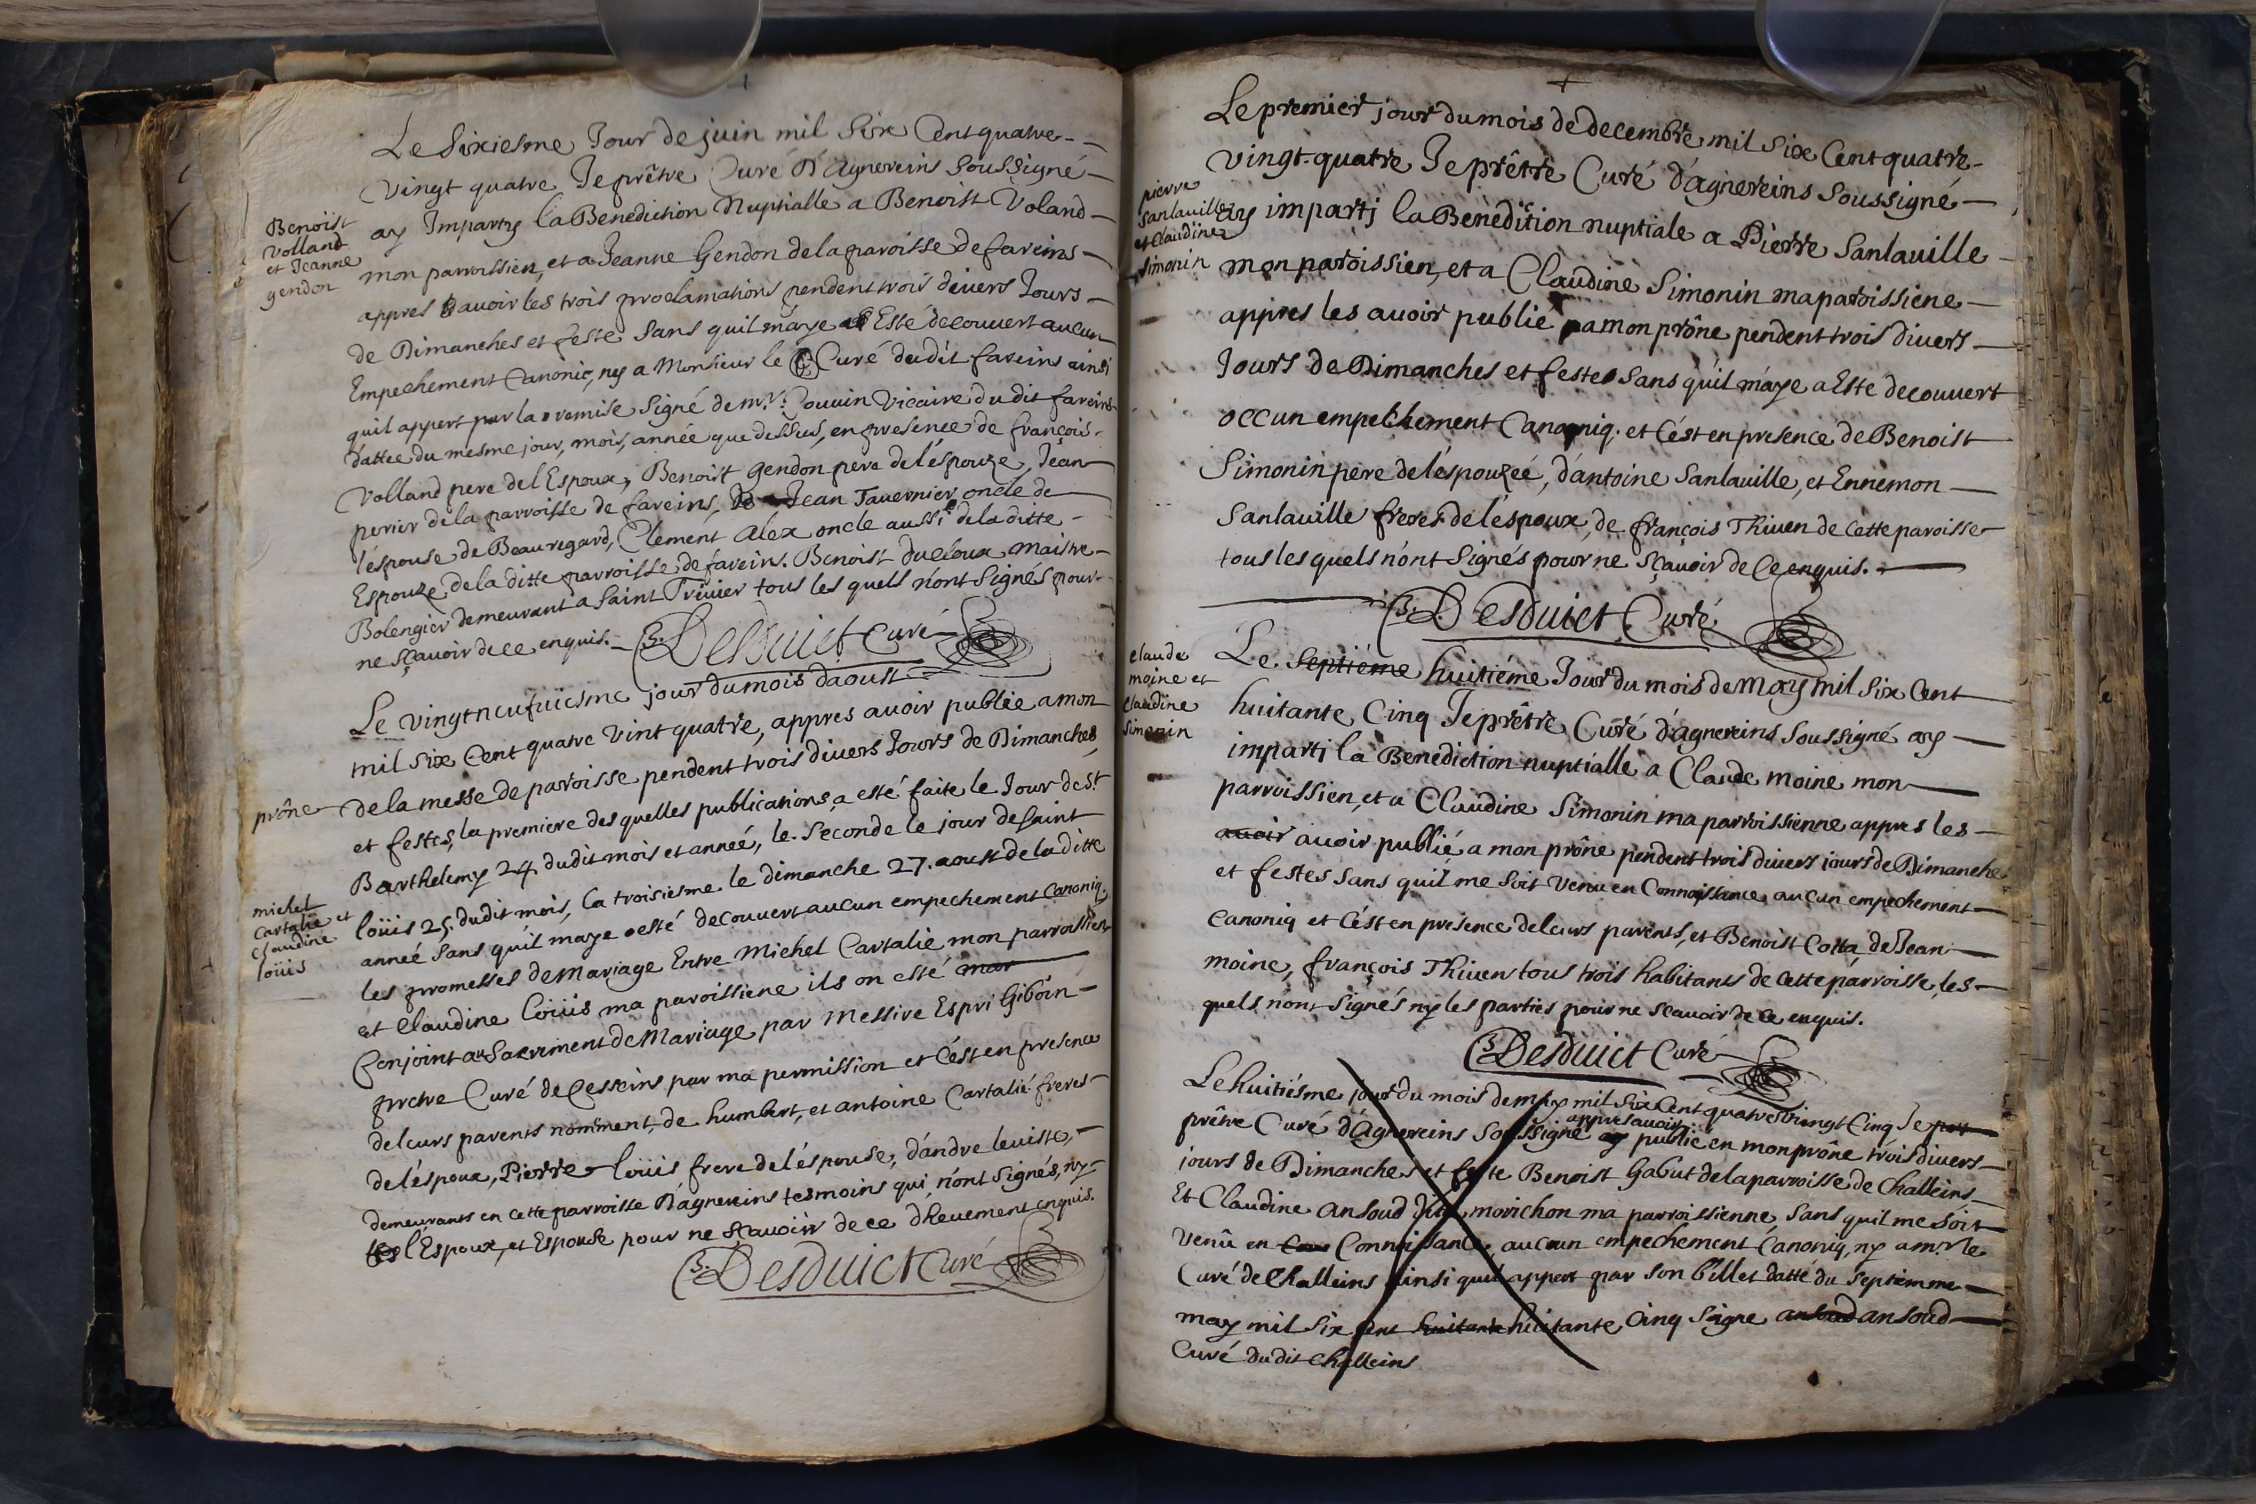 Le Sixiesme Jour de juin mil Six Cent quatre-
Vingt quatre Je prêtre Curé D'Agnereins Soussigné
ay Imparty la Benediction Nuptialle a Benoist Voland
mon parroissien, et a Jeanne Gendon de la paroisse de fareins
appres avoir les trois proclamations pendent trois divers Jours
de Dimanches et feste Sans quil m'aye Esté decouvert aucun
Empechement Canoniq, ny a Monsieur le Curé dudit fareins ainsi
quil appert par la remise Signé de mr. Jouvin Vicaire du dit fareins
dattée du mesme jour, mois, année que dessus, en presence de françois
Volland pere de l'Espoux, Benoist gendon pere de l'espouze, Jean
perier de la parroisse de fareins, Jean Tavernier oncle de
l'éspouse de Beauregard, Clement Alex oncle aussi de la ditte
Espouze de la ditte parroisse de fareins. Benoist ducloux maistre
Bolengier demeurant a Saint Trivier tous les quels n'ont Signés pour
ne sçavoir de ce enquis.
B. Desduict Curé
Benoist
Volland
et Jeanne
gendon
Le vingtneufuiesme jour du mois daoust
mil Six Cent quatre Vint quatre, appres avoir publiée a mon
prône
de la messe de paroisse pendent trois divers Jours de Dimanches
et festes, la premiere des quelles publications a esté faite le Jour de St.
Barthelemy 24. dudit mois et année, le Seconde le jour de Saint
loüis 25. dudit mois, la troisiesme le dimanche 27. aoust de la ditte
année Sans qu'il maye esté decouvert aucun empechement Canoniq,
les promesses de Mariage Entre Michel Cartalié mon parroissien
et Claudine Loüis ma paroissiene ils on esté mar
Conjoint au Sacrement de Mariage par Messire Espri Giboin
prctre Curé de Cesseins par ma permission et C'est en presence
de leurs parents nomment, de humbert, et antoine Cartalié freres
de l'éspoux, Pierre loüis frere de l'éspouse, d'andre leviste,
demeurants en cette parroisse D'agnereins tesmoins qui n'ont Signés, ny
l'Espoux, et Espouse pour ne sçavoir de ce dheuement enquis.
B. Desduict Curé
michel
Cartalié et
Claudine
loüis
Le premier jour du mois de decembre mil Six Cent quatre-
vingt-quatre Je prêtre Curé d'agnereins Soussigné
ay imparti la Benediction nuptiale a Pierre Sanlaville
mon paroissien, et a Claudine Simonin ma paroissiene
appres les avoir publié a mon prône pendent trois divers
Jours de Dimanches et festes Sans qu'il m'aye a Este decouvert
occun empechement Canoniq. et C'est en presence de Benoist
Simonin pere de l'éspouzeé, d'antoine Sanlaville, et Ennemon
Sanlaville freres de l'éspoux, de françois Thiven de Cette paroisse
tous les quels n'ont Signés pour ne sçavoir de Ce enquis.
B. Desduict Curé
pierre
Sanlaville
et Claudine
Simonin
Le Septiéme huitiéme Jour du mois de May mil Six Cent
huitante Cinq Je prêtre Curé d'agnereins Soussigné ay
imparti la Benediction nuptialle a Claude moine mon
parroissien, et a Claudine Simonin ma parroissienne appres les
avoir avoir publié a mon prône pendent trois divers iours de Dimanche
et festes Sans qu'il me Soit Venu en Connoissance aucun empechement
Canoniq et C'ést en presence de leurs parents, et Benoist Cotta, de Jean
moine, françois Thiven tous trois habitants de Cette parroisse, les
quels n'ont Signés ny les parties pour ne sçavoir de Ce enquis.
B. Desduict Curé
Claude
moine et
Claudine
Simonin
Le huitiésme jour du mois de may mil Six Cent quatre Vingt Cinq Je
appres avoir
prêtre Curé d'Agnereins Soussigné ay publié en mon prône trois divers
jours de Dimanches et feste Benoist Gabut de la parroisse de Challeins
Et Claudine ansoud dite morichon ma parroissienne Sans quil me Soit
Venû en Connoissance aucun empechement Canoniq, ny a mr. le
Curé de Challeins ainsi quil appert par Son billet datté du Septiemme
may mil Six Cent huitante huitante Cinq Signe ansoud ansoud
Curé dudit Challeins